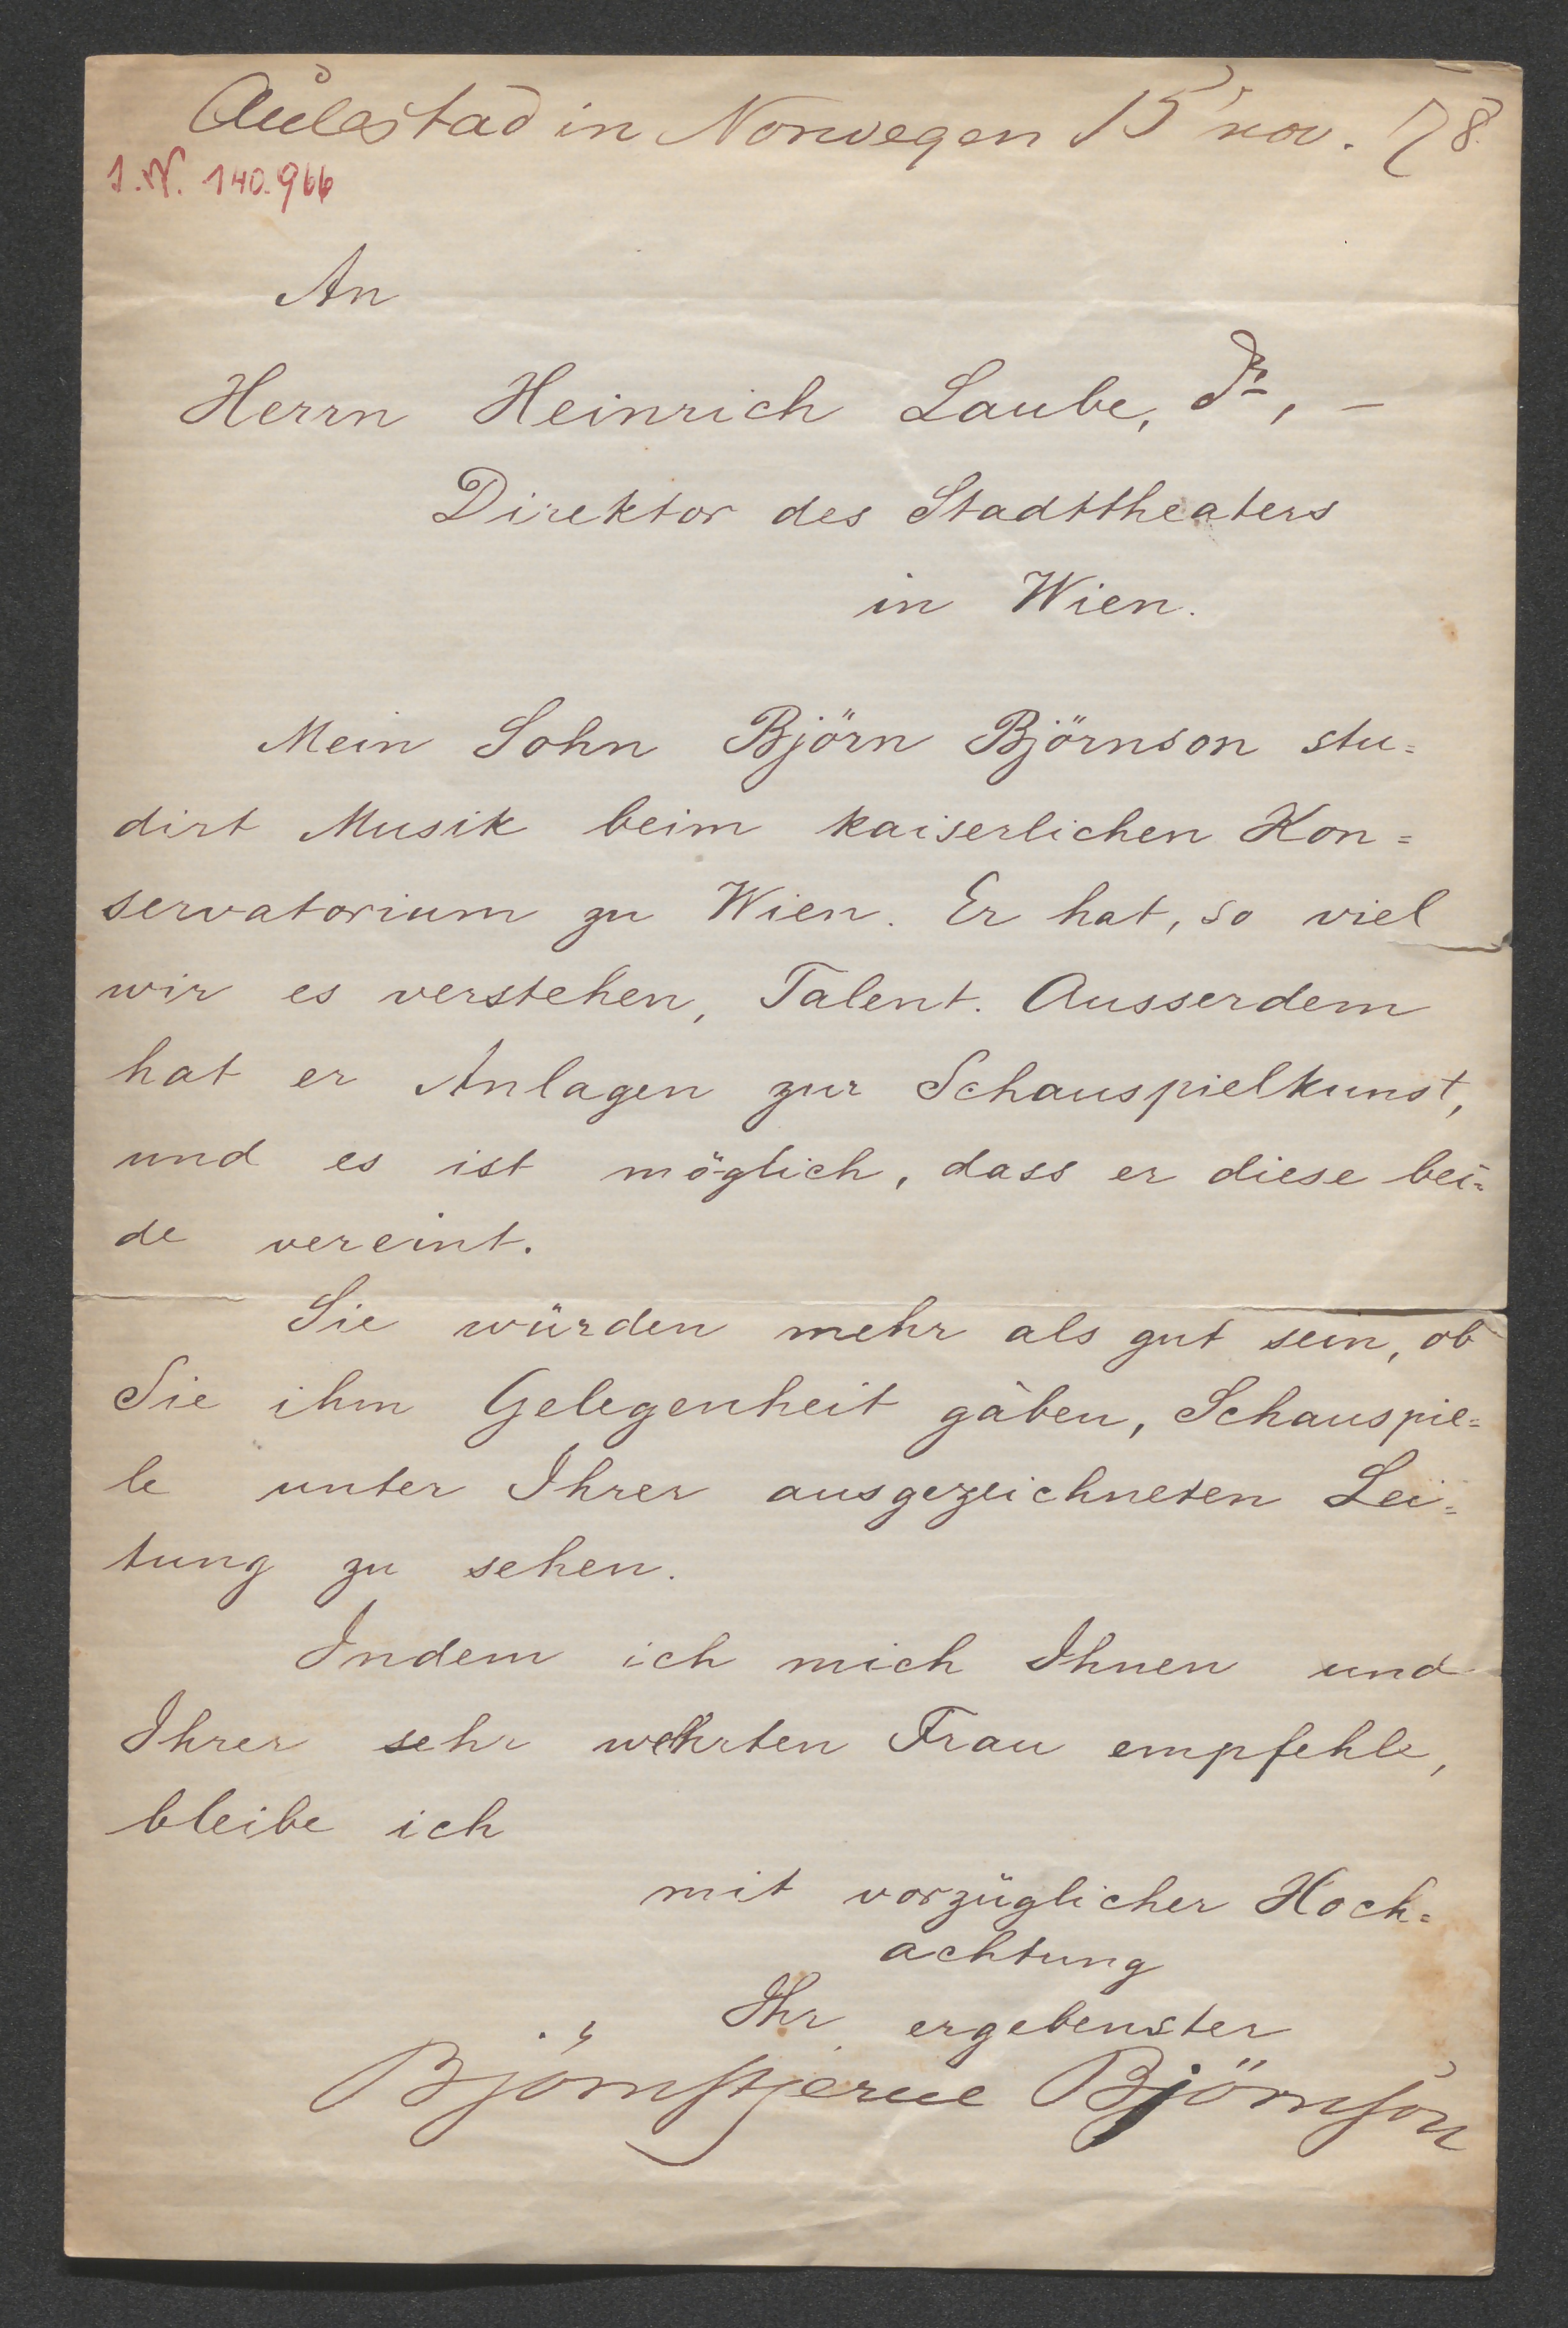 Aulestad in Norwegen 15 nov. 78.
I.N. 140.966
An
Herrn Heinrich Laube, Dr, –
Direktor des Stadttheaters
in Wien.
Mein Sohn Björn Björnson stu=
dirt Musik beim kaiserlichen Kon=
servatorium zu Wien. Er hat, so viel
wir es verstehen, Talent. Ausserdem
hat er Anlagen zur Schauspielkunst,
und es ist möglich, dass er diese bei=
de vereint.
Sie würden mehr als gut sein, ob
Sie ihm Gelegenheit gäben, Schauspie=
le unter Ihrer ausgezeichneten Lei=
tung zu sehen.
Indem ich mich Ihnen und
Ihrer sehr wehrten Frau empfehle,
bleibe ich
mit vorzüglicher Hoch=
achtung
Ihr ergebenster
Björnstjerne Björnson